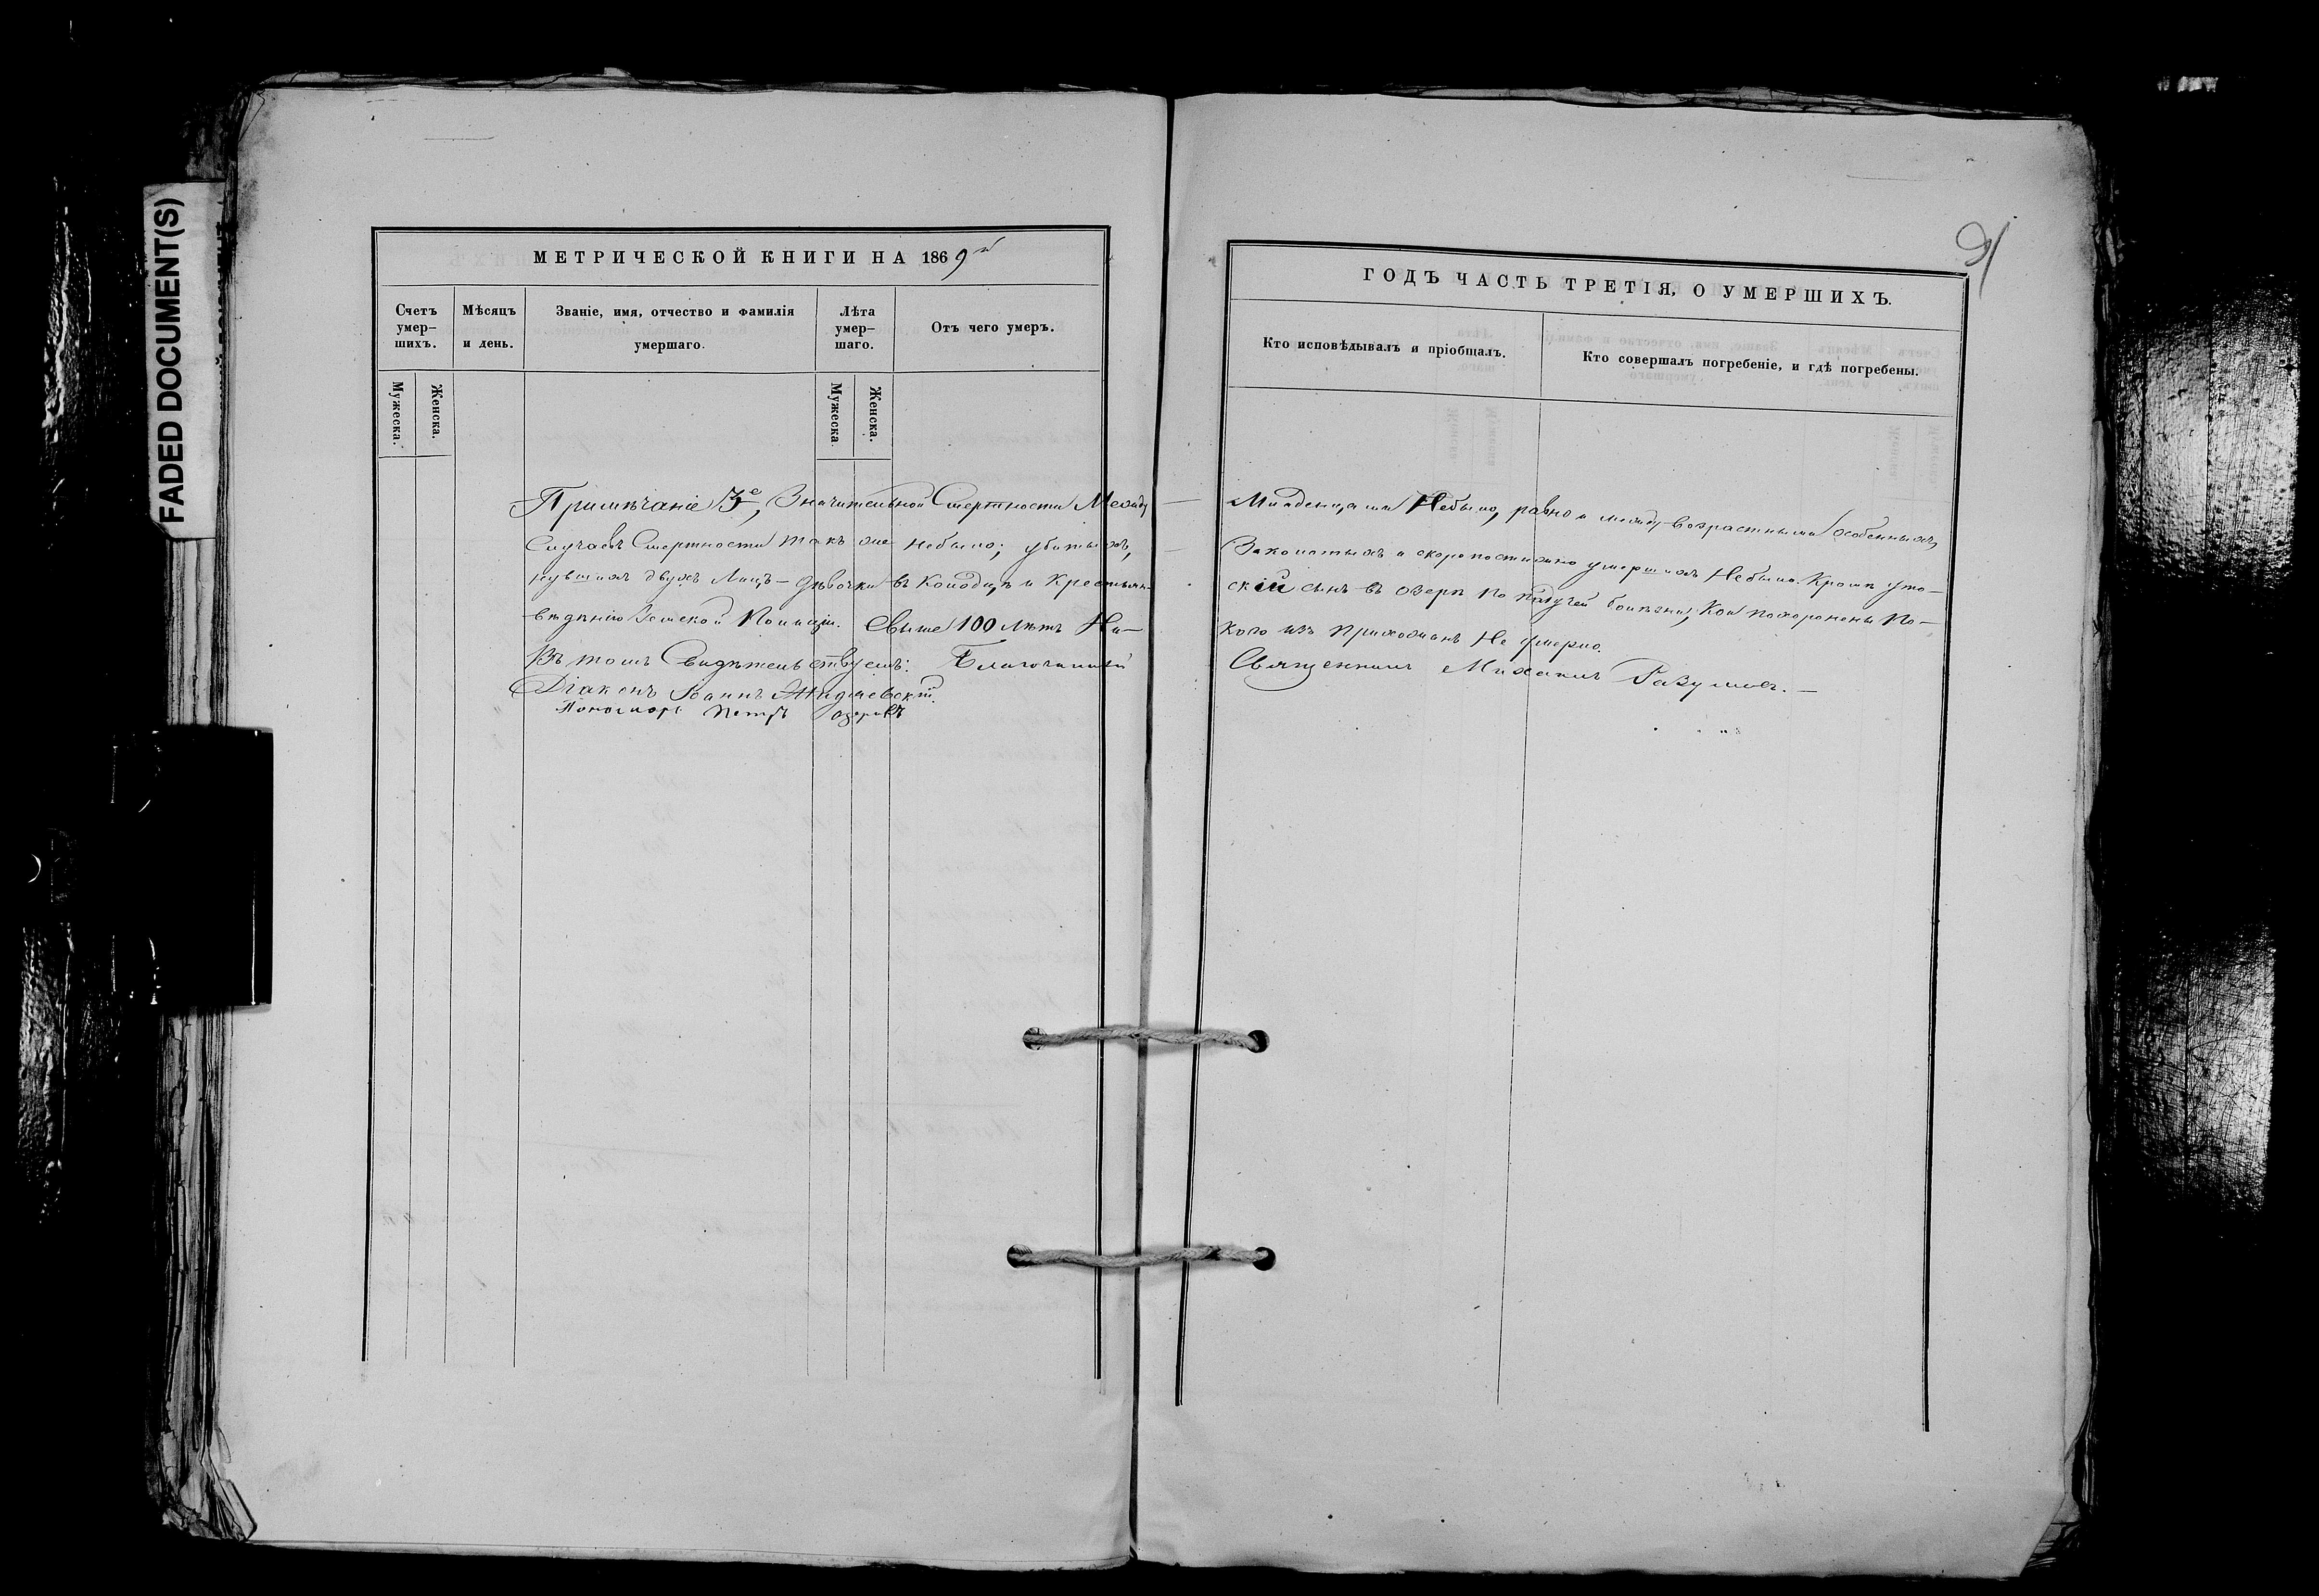 FADED DOCUMENT(S)
МЕТРИЧЕСКОЙ КНИГИ НА 1869й
Счетъ умер-шихъ.
Мѣсяцъ и день.
Званіе, имя, отчество и фамилія умершаго.
Лѣта умер-шаго.
Отъ чего умеръ.
Мужеска.
Женска.
Мужеска.
Женска.
Примѣчаніе 3е, Значительной Смертности Между
Случаевъ Смертности такъ же небыло; убитыхъ,
нувшихъ двухъ Лицъ – дѣвочки въ Колодцѣ и Крестьян-
вѣденію Земской Полиціи. Свыше 100 лѣтъ Ни-
Въ томъ Свидѣтельствуемъ: Благочинный
Діаконъ Іоаннъ
Пономарь Петръ
91
ГОДЪ ЧАСТЬ ТРЕТІЯ, О УМЕРШИХЪ.
Кто исповѣдывалъ и пріобщалъ.
Кто совершалъ погребеніе, и гдѣ погребены.
Младенцами Небыло, равно и между возрастными Особенныхъ
и скоропостижно умершихъ Небыло. Кромѣ уто-
скій сынъ въ озерѣ по падучей болѣзни, Кои похоронены По-
кого изъ прихожанъ Не умерло.
Священникъ Михаилъ Разумовъ. –